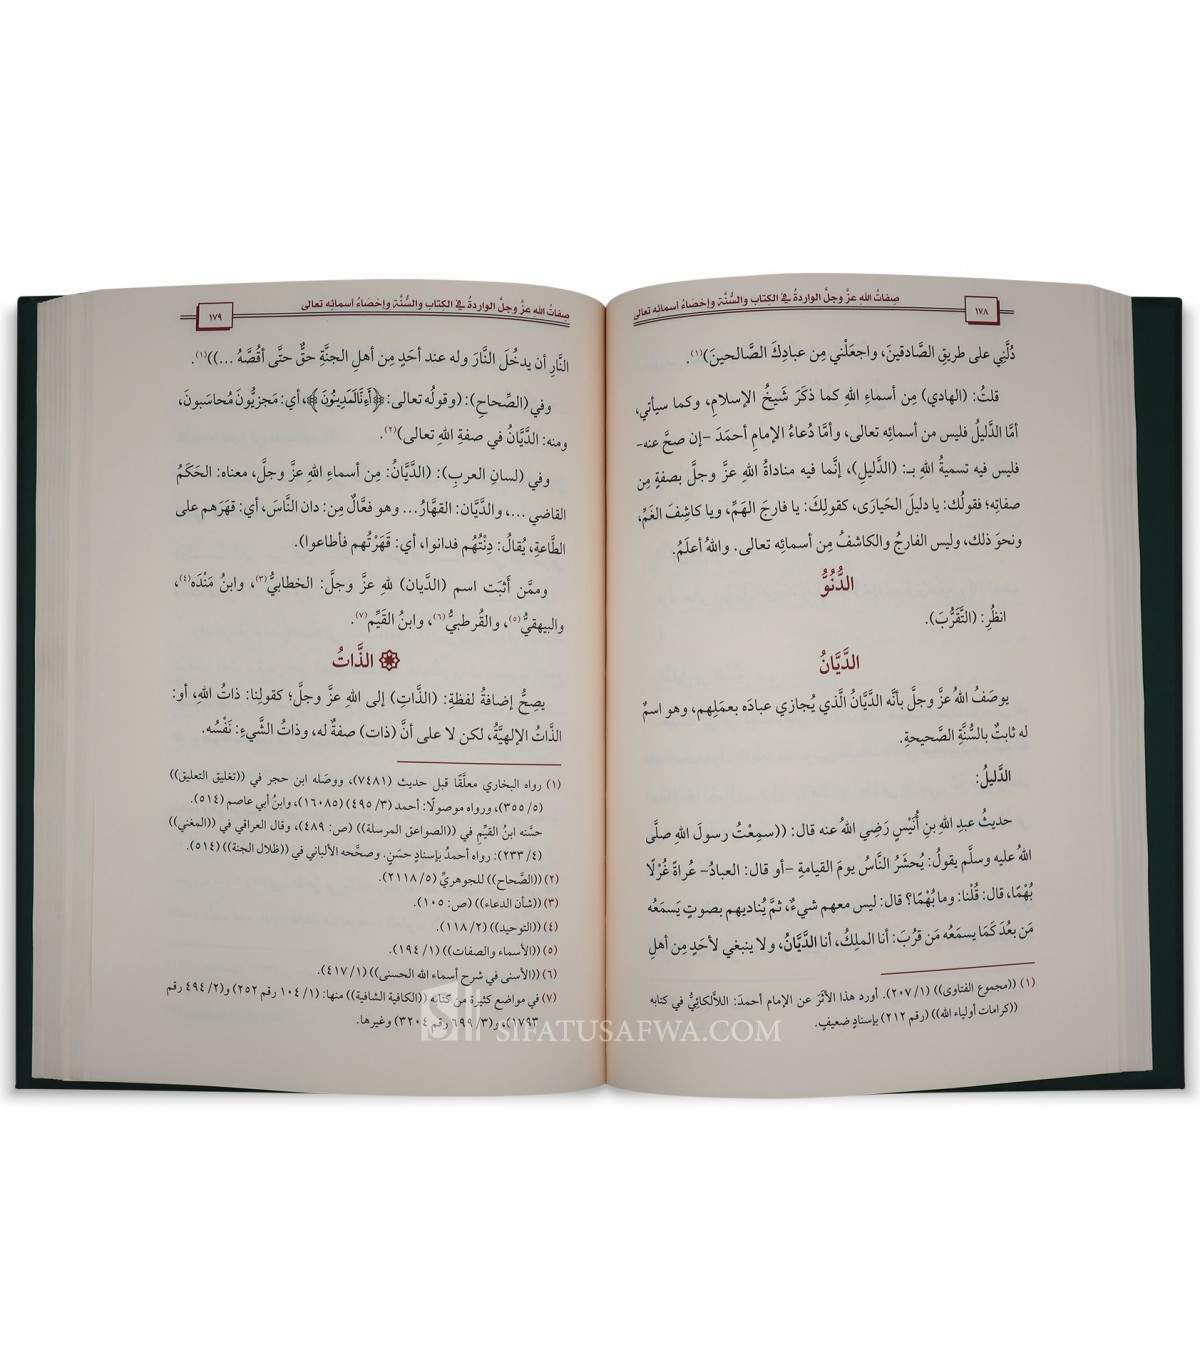 صِفاتُ اللهِ عزَّ وجلَّ الواردةُ في الكِتابِ والسُّنَّة وإحْصَاءُ أسمائِه تعالى
١٧٨
دُلَّنِي على طريقِ الصَّادقينَ، واجعَلْني مِن عبادِكَ الصَّالحينَ)(١).
قلتُ: (الهادي) مِن أسماءِ اللهِ كما ذكَرَ شَيخُ الإسلامِ، وكما سيأتي،
أمَّا الدَّليلُ فليس من أسمائِه تعالى، وأمَّا دُعاءُ الإمامِ أحمَدَ –إن صحَّ عنه–
فليس فيه تسميةُ اللهِ بـ: (الدَّليلِ)، إنَّما فيه مناداةُ اللهِ عزَّ وجلَّ بصفةٍ مِن
صفاتِه؛ فقولُك: يا دليلَ الحَيارَى، كقولِكَ: يا فارجَ الهَمِّ، ويا كاشِفَ الغَمِّ،
ونحوَ ذلك، وليس الفارجُ والكاشفُ مِن أسمائِه تعالى. واللهُ أعلَمُ.
الدُّنُوُّ
انظُرِ: (التَّقَرُّبَ).
الدَّيَّانُ
يوصَفُ اللهُ عزَّ وجلَّ بأنَّه الدَّيَّانُ الَّذي يُجازي عبادَه بعمَلِهم، وهو اسمٌ
له ثابتٌ بالسُّنَّةِ الصَّحيحةِ.
الدَّليلُ:
حديثُ عبدِ اللهِ بنِ أُنَيْسٍ رَضِي اللهُ عنه قال: ((سمِعْتُ رسولَ اللهِ صلَّى
اللهُ عليه وسلَّم يقولُ: يُحشَرُ النَّاسُ يومَ القيامةِ –أو قال: العبادُ– عُراةً غُرْلًا
بُهْمًا، قال: قُلْنا: وما بُهْمًا؟ قال: ليس معهم شيءٌ، ثمَّ يُناديهم بصوتٍ يَسمَعُه
مَن بعُدَ كَمَا يسمَعُه مَن قرُبَ: أنا الملِكُ، أنا الدَّيَّانُ، ولا ينبغي لأحَدٍ مِن أهلِ
(١) ((مجموع الفتاوى)) (١/ ٢٠٧). أورد هذا الأثَرَ عن الإمام أحمدَ: اللاَّلكائيُّ في كتابه
((كرامات أولياء الله)) (رقم ٢١٢) بإسنادٍ ضعيفٍ.
صِفاتُ اللهِ عزَّ وجلَّ الواردةُ في الكِتابِ والسُّنَّة وإحْصَاءُ أسمائِه تعالى
١٧٩
النَّارِ أن يدخُلَ النَّارَ وله عند أحَدٍ مِن أهلِ الجنَّةِ حقٌّ حتَّى أقُصَّهُ ...))(١).
وفي (الصِّحاحِ): (وقولُه تعالى: ﴿أَءِنَّا لَمَدِينُونَ﴾، أي: مَجزيُّونَ مُحاسَبونَ،
ومنه: الدَّيَّانُ في صفةِ اللهِ تعالى)(٢).
وفي (لسانِ العربِ): (الدَّيَّانُ: مِن أسماءِ اللهِ عزَّ وجلَّ، معناه: الحَكَمُ
القاضي ...، والدَّيَّان: القهَّارُ... وهو فعَّالٌ مِن: دان النَّاسَ، أي: قهَرَهم على
الطَّاعةِ، يُقالُ: دِنْتُهُم فدانوا، أي: قَهَرْتُهم فأطاعوا).
وممَّن أَثبَت اسم (الدَّيان) للهِ عزَّ وجلَّ: الخطابيُّ(٣)، وابنُ مَنْدَه(٤)،
والبيهقيُّ(٥)، والقُرطبيُّ(٦)، وابنُ القيِّم(٧).
الذَّاتُ
يصِحُّ إضافةُ لفظةِ: (الذَّاتِ) إلى اللهِ عزَّ وجلَّ؛ كقولِنا: ذاتُ اللهِ، أو:
الذَّاتُ الإلهيَّةُ، لكن لا على أنَّ (ذات) صفةٌ له، وذاتُ الشَّيءِ: نَفْسُه.
(١) رواه البخاري معلَّقًا قبل حديث (٧٤٨١)، ووصَله ابن حجر في ((تغليق التعليق))
(٥/ ٣٥٥)، ورواه موصولًا: أحمد (٣/ ٤٩٥) (١٦٠٨٥)، وابنُ أبي عاصم (٥١٤).
حسَّنه ابنُ القيِّم في ((الصواعق المرسلة)) (ص: ٤٨٩)، وقال العراقي في ((المغني))
(٤/ ٢٣٣): رواه أحمدُ بإسنادٍ حسَنٍ. وصحَّحه الألباني في ((ظلال الجنة)) (٥١٤).
(٢) ((الصَّحاح)) للجوهريِّ (٥/ ٢١١٨).
(٣) ((شأن الدعاء)) (ص: ١٠٥).
(٤) ((التوحيد)) (٢/ ١١٨).
(٥) ((الأسماء والصفات)) (١/ ١٩٤).
(٦) ((الأسنى في شرح أسماء الله الحسنى)) (١/ ٤١٧).
(٧) في مواضع كثيرة من كتابه ((الكافية الشافية)) منها: (١/ ١٠٤ رقم ٢٥٢) و(٢/ ٤٩٤ رقم
١٧٩٣)، و(٣/ ٦٩٩ رقم ٣٢٠٤) وغيرها.
SIFATUSAFWA.COM